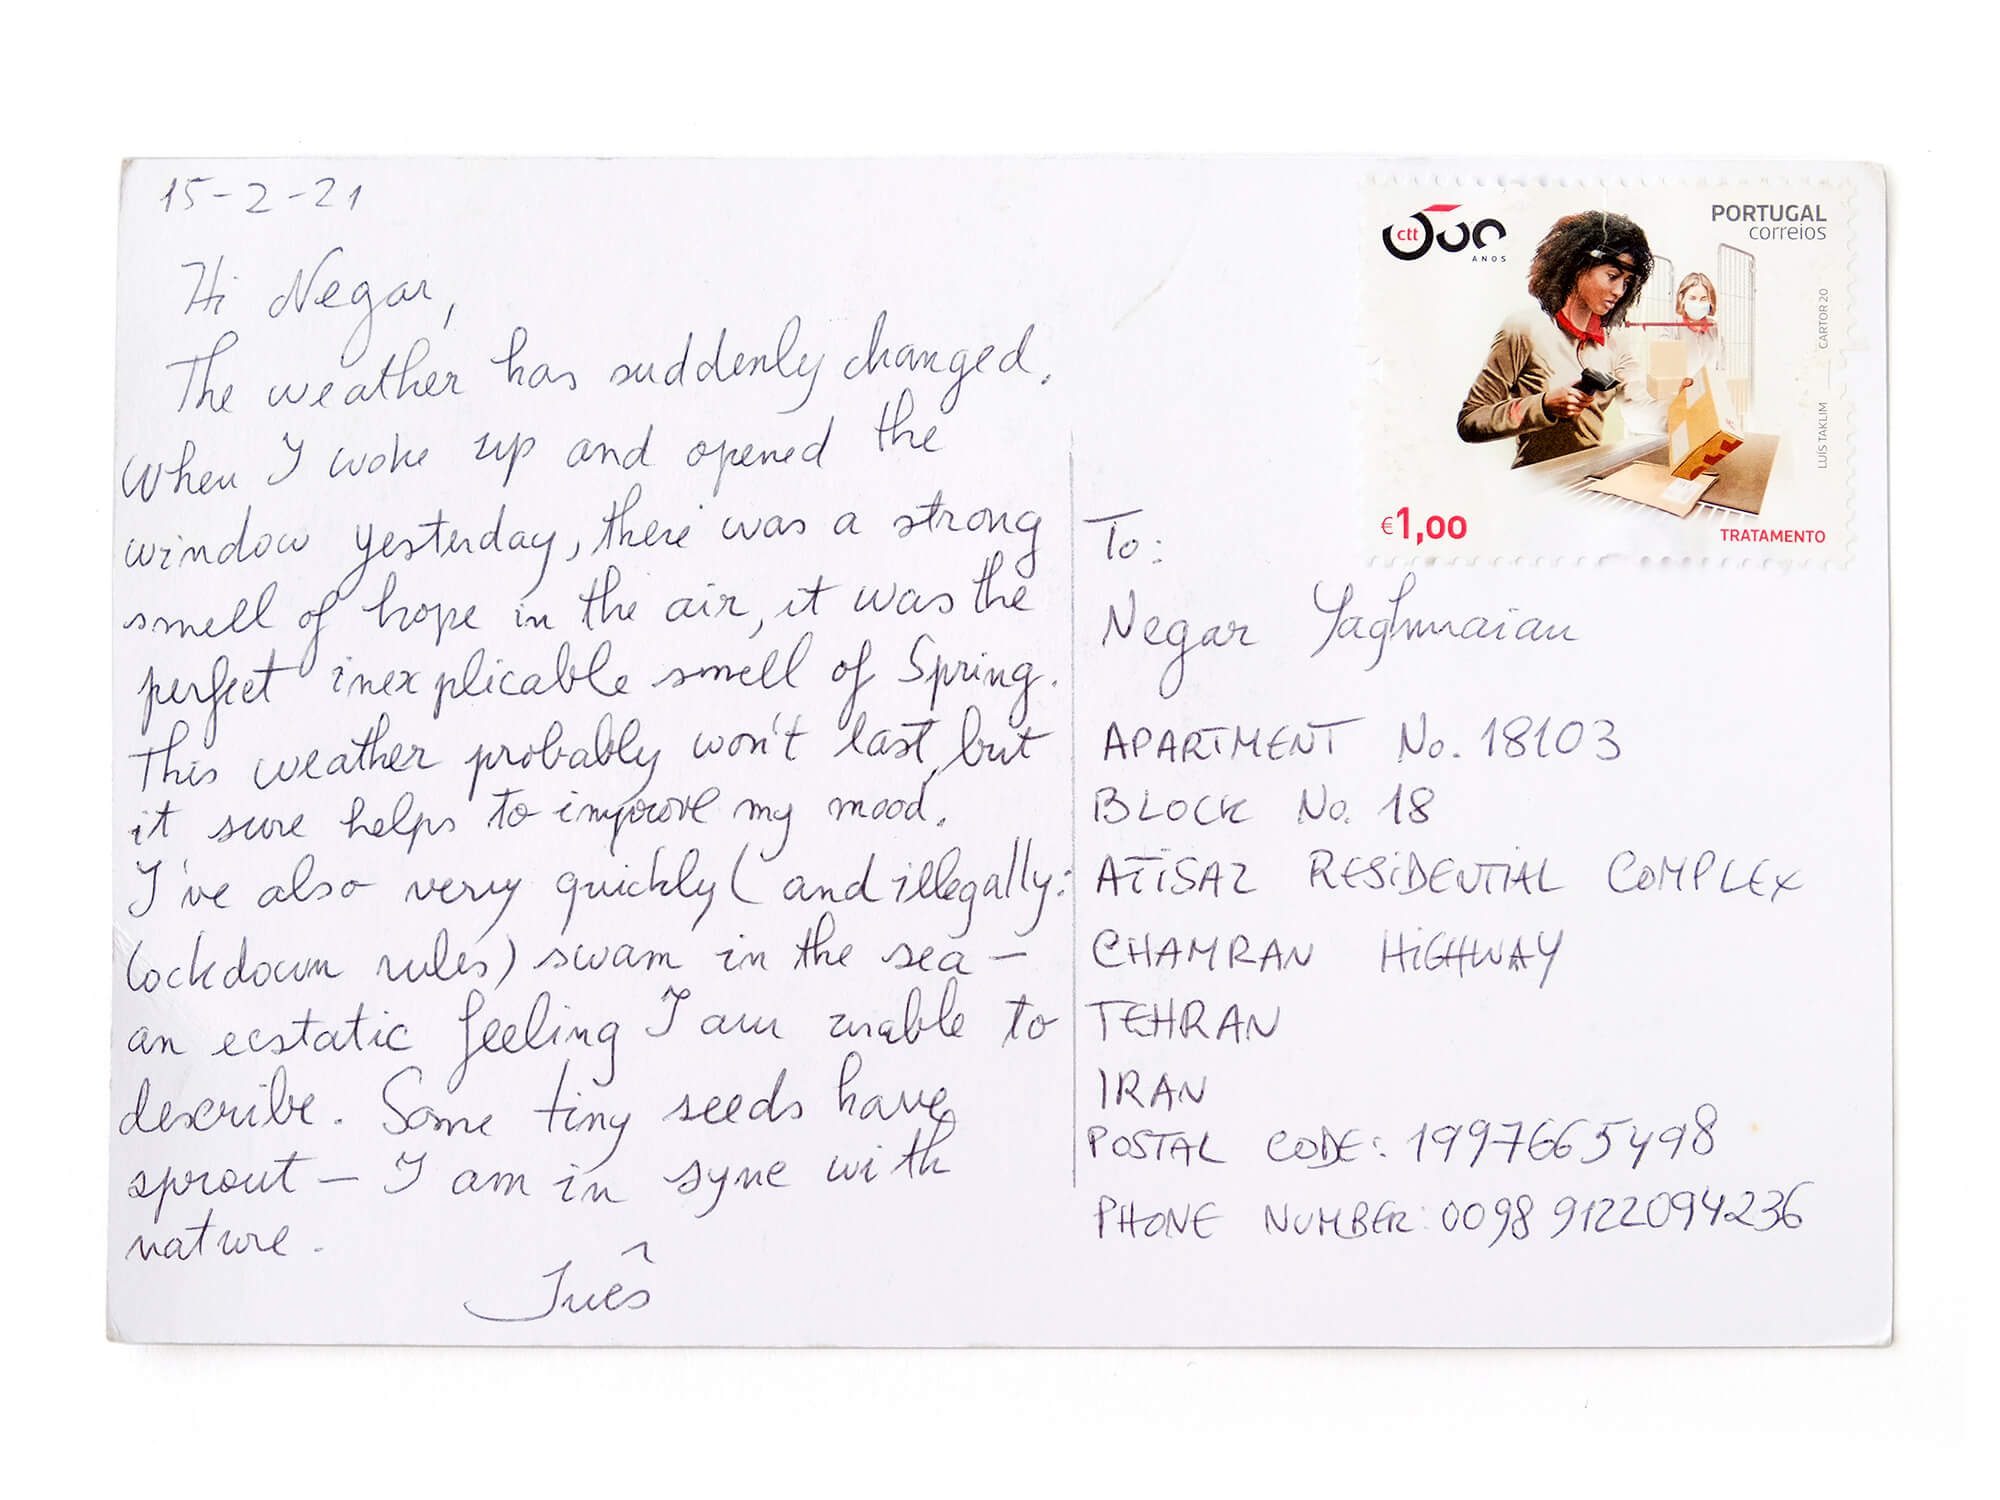 15-2-21
Hi Negar,
The weather has suddenly changed.
When I woke up and opened the
window yesterday, there was a strong
smell of hope in the air, it was the
perfect inexplicable smell of Spring.
This weather probably won't last, but
it sure helps to improve my mood.
I've also very quickly (and illegally:
lockdown rules) swam in the sea –
an ecstatic feeling I am unable to
describe. Some tiny seeds have
sprout – I am in sync with
nature.
Inês
ctt 500
ANOS
PORTUGAL
correios
LUÍS TAKLIM CARTOR 20
€1,00
TRATAMENTO
To:
Negar Yaghmaian
APARTMENT No. 18103
BLOCK No. 18
ATISAZ RESIDENTIAL COMPLEX
CHAMRAN HIGHWAY
TEHRAN
IRAN
POSTAL CODE: 1997665498
PHONE NUMBER: 0098 9122094236